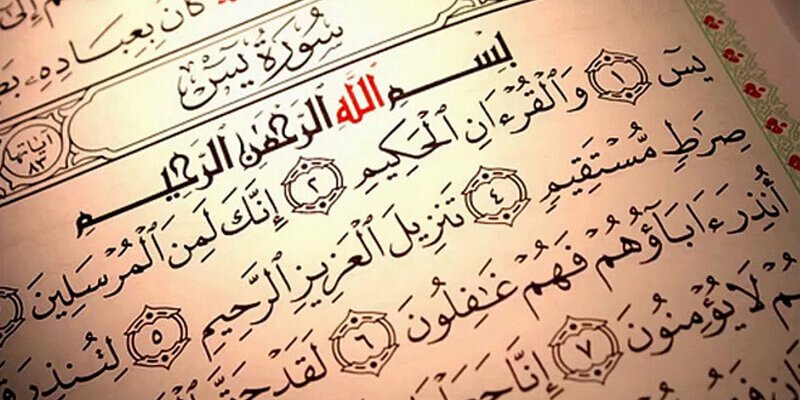 إِلَىٰ
كَانَ بِعِبَادِهِۦ
سُورَةُ يسٓ
آياتها ٨٣
بِسْمِ ٱللَّهِ ٱلرَّحْمَٰنِ ٱلرَّحِيمِ
يسٓ ١ وَٱلْقُرْءَانِ ٱلْحَكِيمِ ٢ إِنَّكَ لَمِنَ ٱلْمُرْسَلِينَ
صِرَٰطٍ مُّسْتَقِيمٍ ٤ تَنزِيلَ ٱلْعَزِيزِ ٱلرَّحِيمِ ٥ لِتُنذِرَ
أُنذِرَ ءَابَآؤُهُمْ فَهُمْ غَٰفِلُونَ ٦ لَقَدْ حَقَّ
لَا يُؤْمِنُونَ ٧ إِنَّا